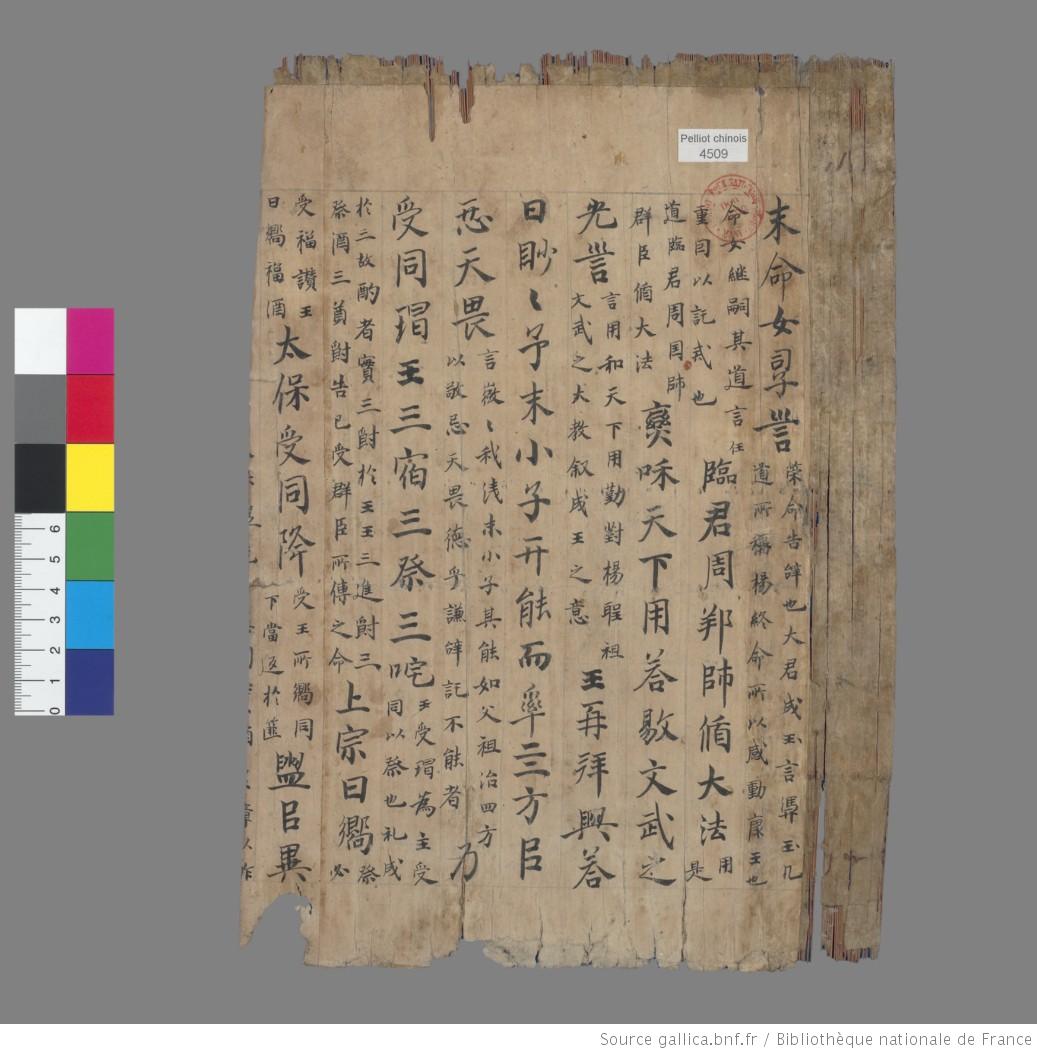 末命女孠𧥧 榮命告辝也大君成王言馮玉几
道所稱楊終命所以感動康王也
命女継嗣其道言任
重因以託戒也 臨君周邦帥循大法 用
是
道臨君周国帥
群臣循大法 燮咊天下用荅敭文武之
光𧥧 言用和天下用勤對楊聖祖
文武之大教叙成王之意 王再拜興荅
曰眇〻予末小子亓能而率亖方㠯
忌天畏 言微〻我浅末小子其能如父祖治四方
以敬忌天畏德乎謙辝託不能者 乃
受同瑁王三宿三祭三咤 王受瑁為主受
同以祭也礼成
於三故酌者實三爵於王王三進爵三
祭酒三奠爵告已受群臣所傳之命 上宗曰嚮 祭
必
受福讚王
曰嚮福酒 太保受同降 受王所嚮同
下當返於篚 盥㠯異
Pelliot chinois
4509
0 1 2 3 4 5 6
Source gallica.bnf.fr / Bibliothèque nationale de France